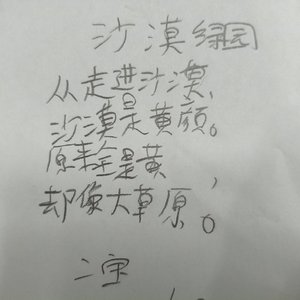 沙漠绿园
从走进沙漠，
沙漠是黄颜。
原来全是黄，
却像大草原。
二宝